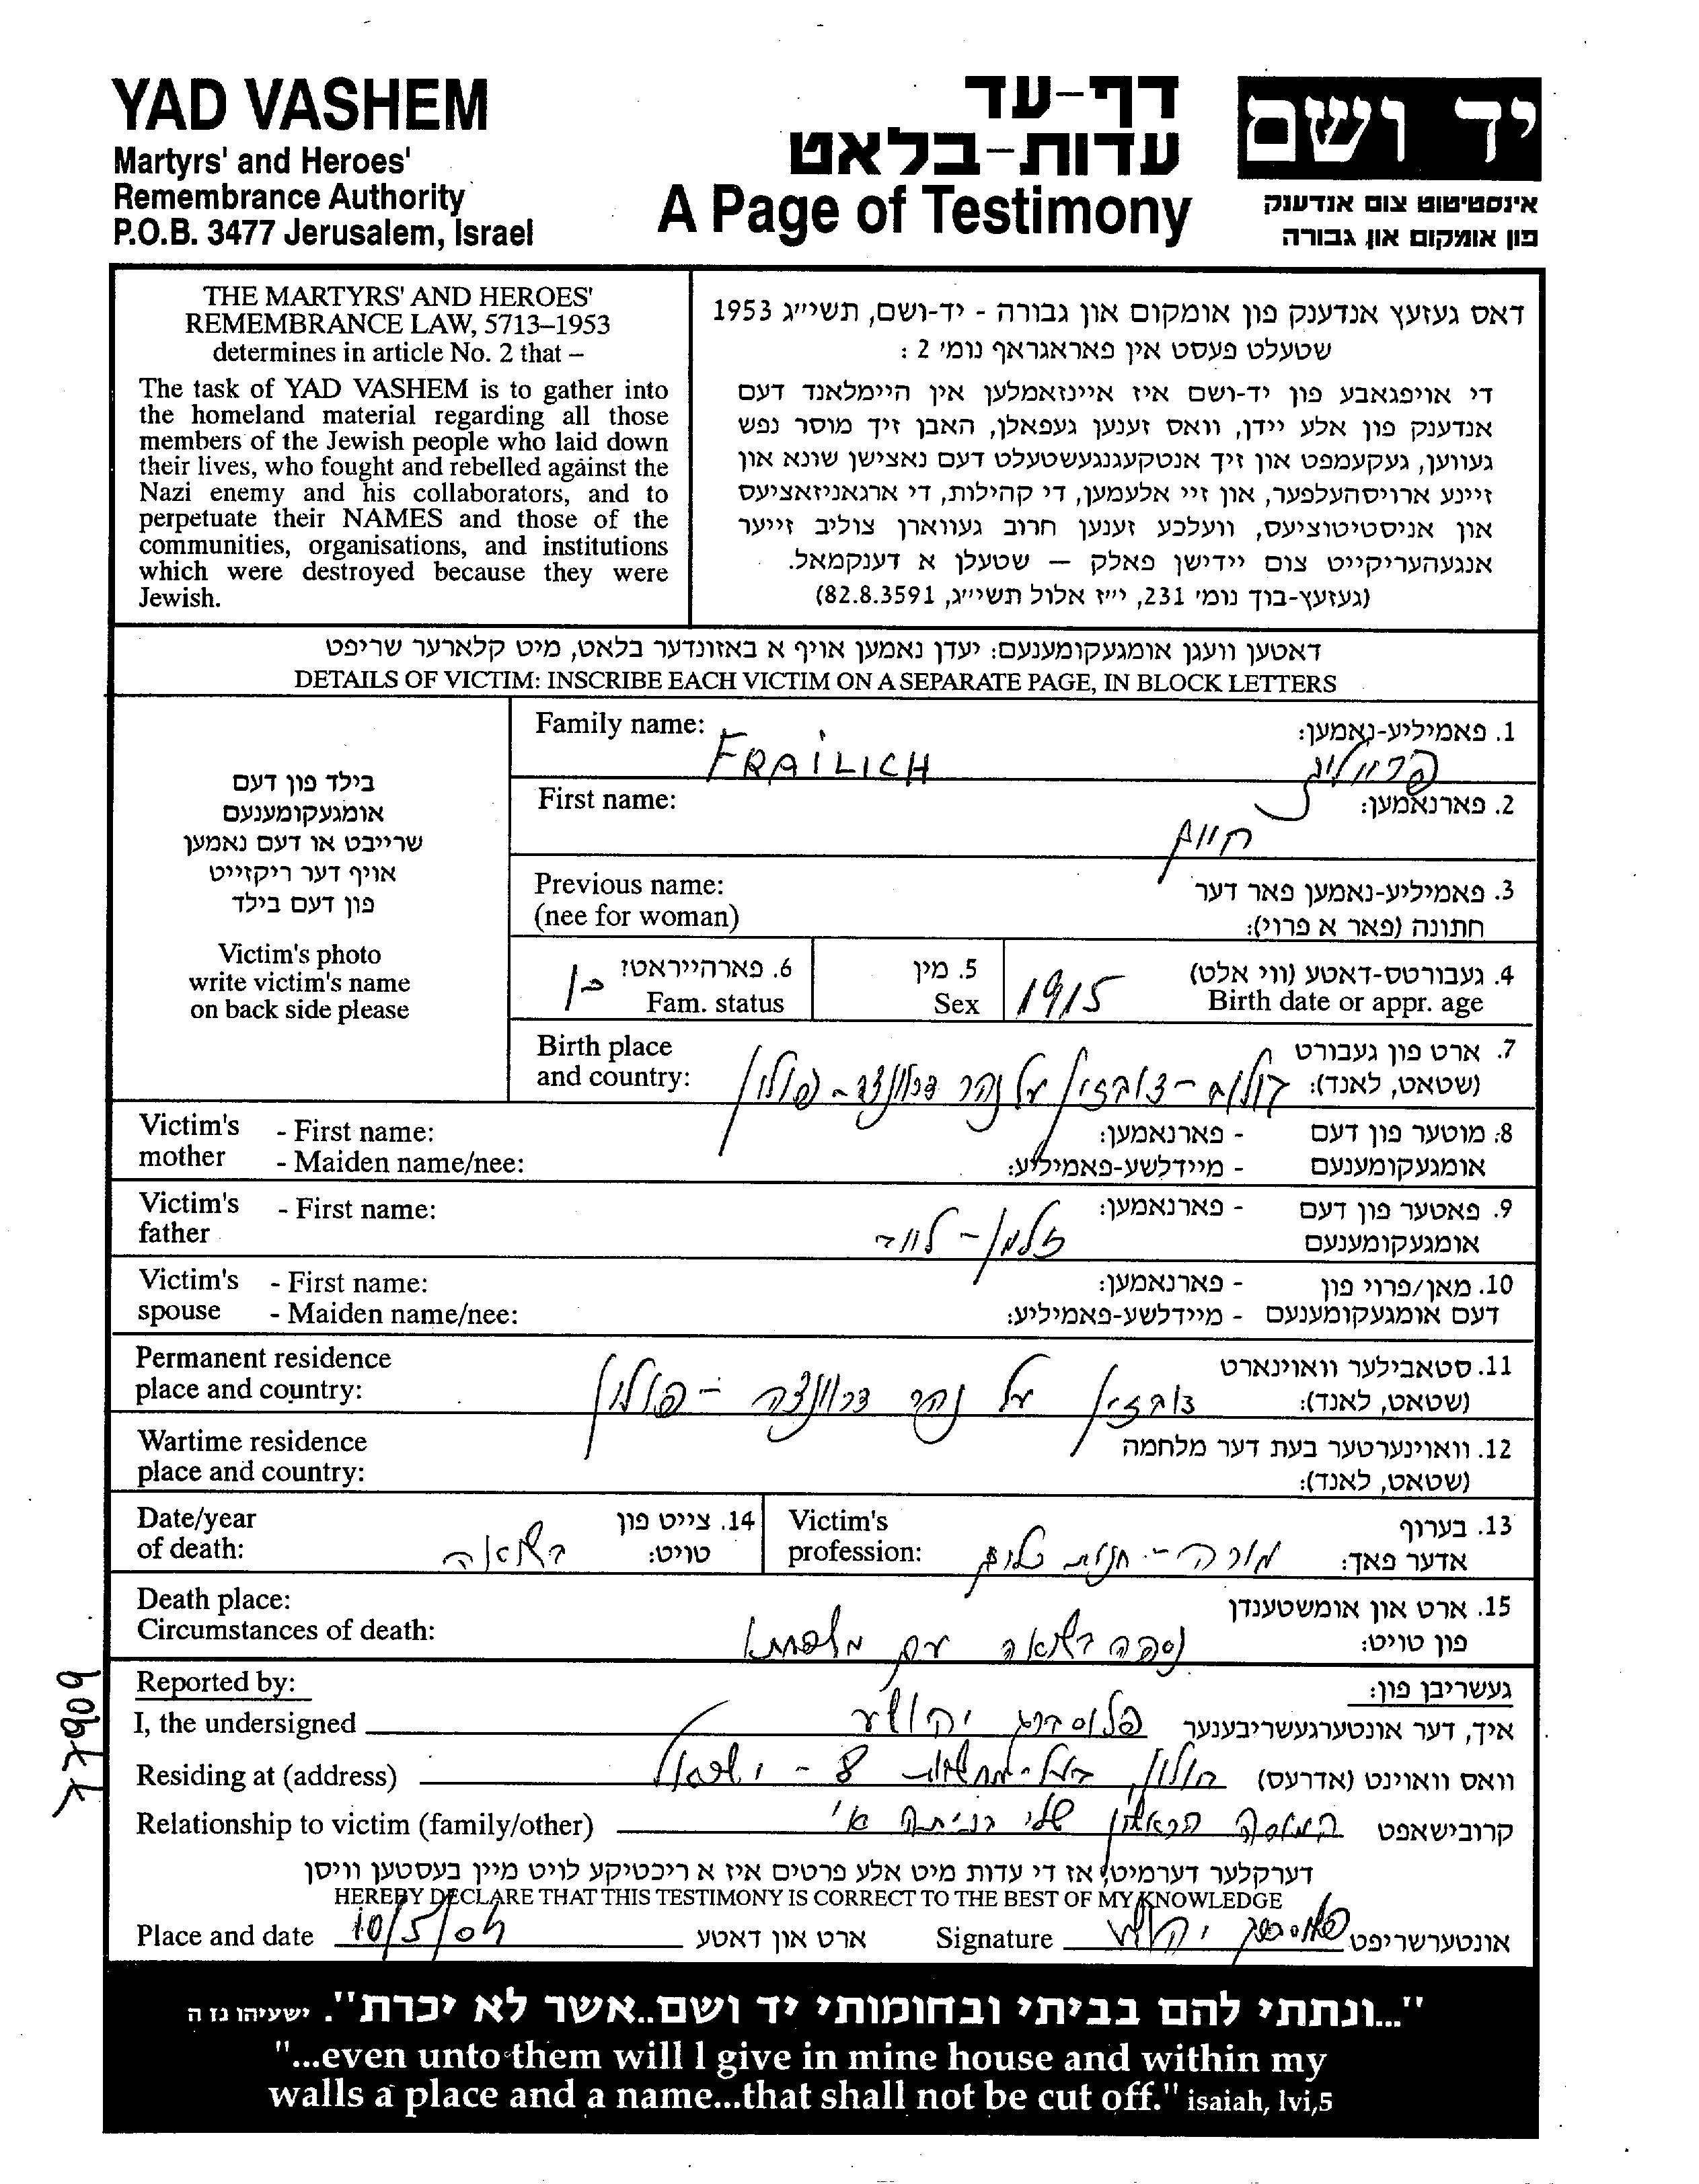 YAD VASHEM
Martyrs' and Heroes'
Remembrance Authority
P.O.B. 3477 Jerusalem, Israel
דף-עד
עדות-בלאט
A Page of Testimony
יד ושם
אינסטיטוט צום אנדענק
פון אומקום און גבורה
THE MARTYRS' AND HEROES'
REMEMBRANCE LAW, 5713–1953
determines in article No. 2 that –
The task of YAD VASHEM is to gather into
the homeland material regarding all those
members of the Jewish people who laid down
their lives, who fought and rebelled against the
Nazi enemy and his collaborators, and to
perpetuate their NAMES and those of the
communities, organisations, and institutions
which were destroyed because they were
Jewish.
דאס געזעץ אנדענק פון אומקום און גבורה - יד-ושם, תשי״ג 1953
שטעלט פעסט אין פאראגראף נומ׳ 2 :
די אויפגאבע פון יד-ושם איז איינזאמלען אין היימלאנד דעם
אנדענק פון אלע יידן, וואס זענען געפאלן, האבן זיך מוסר נפש
געווען, געקעמפט און זיך אנטקעגנגעשטעלט דעם נאצישן שונא און
זיינע ארויסהעלפער, און זיי אלעמען, די קהילות, די ארגאניזאציעס
און אניסטיטוציעס, וועלכע זענען חרוב געווארן צוליב זייער
אנגעהעריקייט צום יידישן פאלק — שטעלן א דענקמאל.
(געזעץ-בוך נומ׳ 231, י״ז אלול תשי״ג, 82.8.3591)
דאטען וועגן אומגעקומענעם: יעדן נאמען אויף א באזונדער בלאט, מיט קלארער שריפט
DETAILS OF VICTIM: INSCRIBE EACH VICTIM ON A SEPARATE PAGE, IN BLOCK LETTERS
בילד פון דעם
אומגעקומענעם
שרייבט או דעם נאמען
אויף דער ריקזייט
פון דעם בילד
Victim's photo
write victim's name
on back side please
Family name: FRAILICH 1. פאמיליע-נאמען: פריליך
First name: 2. פארנאמען: חיים
Previous name: 3. פאמיליע-נאמען פאר דער
(nee for woman) חתונה (פאר א פרוי):
4. געבורטס-דאטע (ווי אלט) 1915 5. מין 6. פארהייראט?
Birth date or appr. age Sex Fam. status
Birth place 7. ארט פון געבורט
and country: (שטאט, לאנד): על נהר דרוונצה - פולין
Victim's - First name: 8. מוטער פון דעם - פארנאמען:
mother - Maiden name/nee: אומגעקומענעם - מיידלשע-פאמיליע:
Victim's - First name: 9. פאטער פון דעם - פארנאמען:
father אומגעקומענעם זלמן -
Victim's - First name: 10. מאן/פרוי פון - פארנאמען:
spouse - Maiden name/nee: דעם אומגעקומענעם - מיידלשע-פאמיליע:
Permanent residence 11. סטאבילער וואוינארט
place and country: (שטאט, לאנד): דובזין על נהר דרוונצה - פולין
Wartime residence 12. וואוינערטער בעת דער מלחמה
place and country: (שטאט, לאנד):
Date/year 14. צייט פון
of death: טויט: בשואה
Victim's 13. בערוף
profession: אדער פאך: מורה - חנות
Death place: 15. ארט און אומשטענדן
Circumstances of death: פון טויט: נספה בשואה עם משפחתו
Reported by: געשריבן פון:
I, the undersigned איך, דער אונטערגעשריבענער יהושע
Residing at (address) וואס וואוינט (אדרעס) חולון, בעלי-מחשבות 8 - ישראל
Relationship to victim (family/other) קרובישאפט המורה הראשון שלי בכיתה א'
דערקלער דערמיט, אז די עדות מיט אלע פרטים איז א ריכטיקע לויט מיין בעסטען וויסן
HEREBY DECLARE THAT THIS TESTIMONY IS CORRECT TO THE BEST OF MY KNOWLEDGE
Place and date 10/5/04 ארט און דאטע Signature אונטערשריפט
"...ונתתי להם בביתי ובחומותי יד ושם..אשר לא יכרת". ישעיהו נז ה
"...even unto them will I give in mine house and within my
walls a place and a name...that shall not be cut off." isaiah, lvi,5